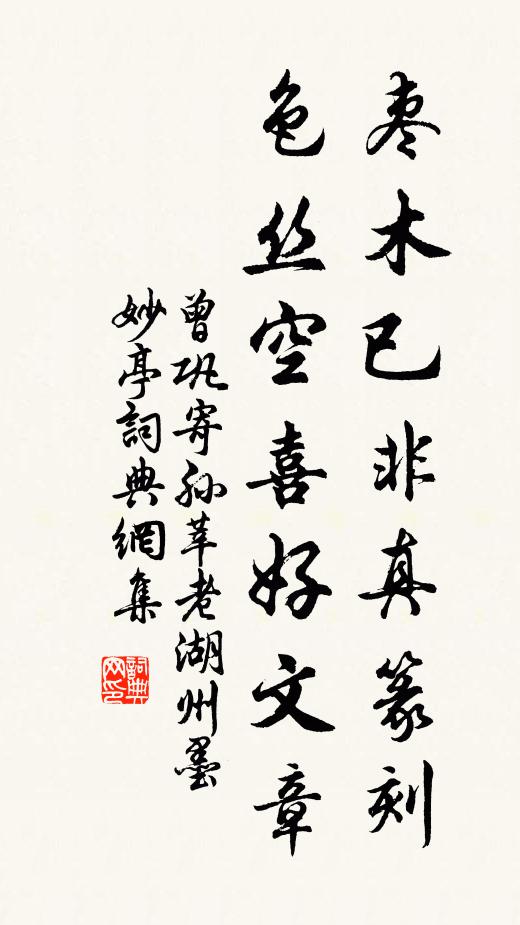 棗木已非真篆刻
色丝空喜好文章
曾巩寄孙莘老湖州墨
妙亭詞典網集
詞典
网印